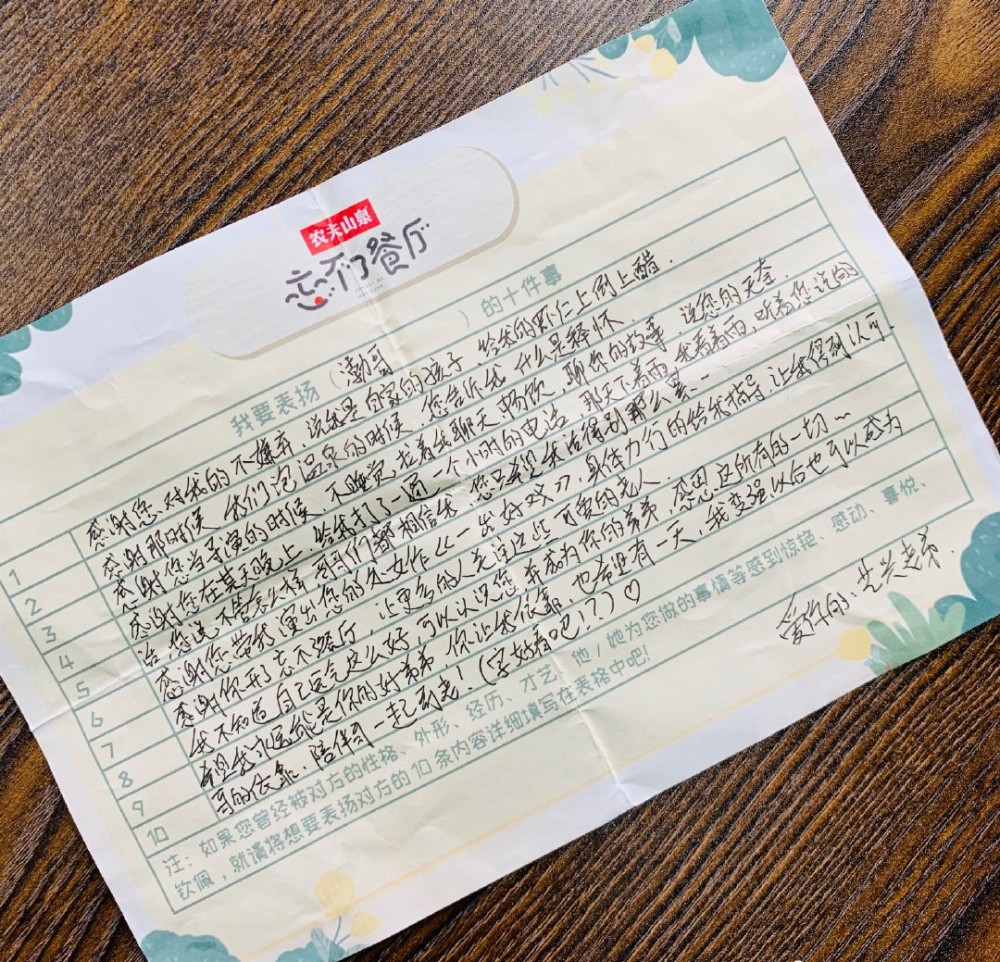 农夫山泉
忘不了餐厅
我要表扬（渤哥）的十件事
1 感谢您对我的不嫌弃，说我是自家的孩子，给我的虾仁上倒上醋.
2 感谢那时候我们泡温泉的时候，您告诉我什么是释怀.
3 感谢您当导演的时候，不睡觉，拉着我聊天，畅饮，聊你的故事，说您的无奈.
4 感谢您在某天晚上，给我打了一通一个小时的电话，那天下着雨，我看着雨，听着您说的
5 话，您说不管怎么样，哥们都相信我，您只希望我活得别那么累……
6 感谢您带我演出您的处女作《一出好戏》，身体力行的给我指导，让我得到认可.
7 感谢你开了忘不了餐厅，让更多的人关注这些可爱的老人.
8 我不知道自己运气这么好，可以认识您，并成为你的弟弟，感恩这所有的一切～
9 希望我永远都是你的好弟弟，你让我依靠，也希望有一天，我变强以后也可以成为
10 哥的依靠，陪伴哥一起到老！（字好看吧！？）♡
注：如果您曾经被对方的性格、外形、经历、才艺、他/她为您做的事情等感到惊艳、感动、喜悦、
钦佩，就请将想要表扬对方的10条内容详细填写在表格中吧!
爱你的：艺兴老弟.